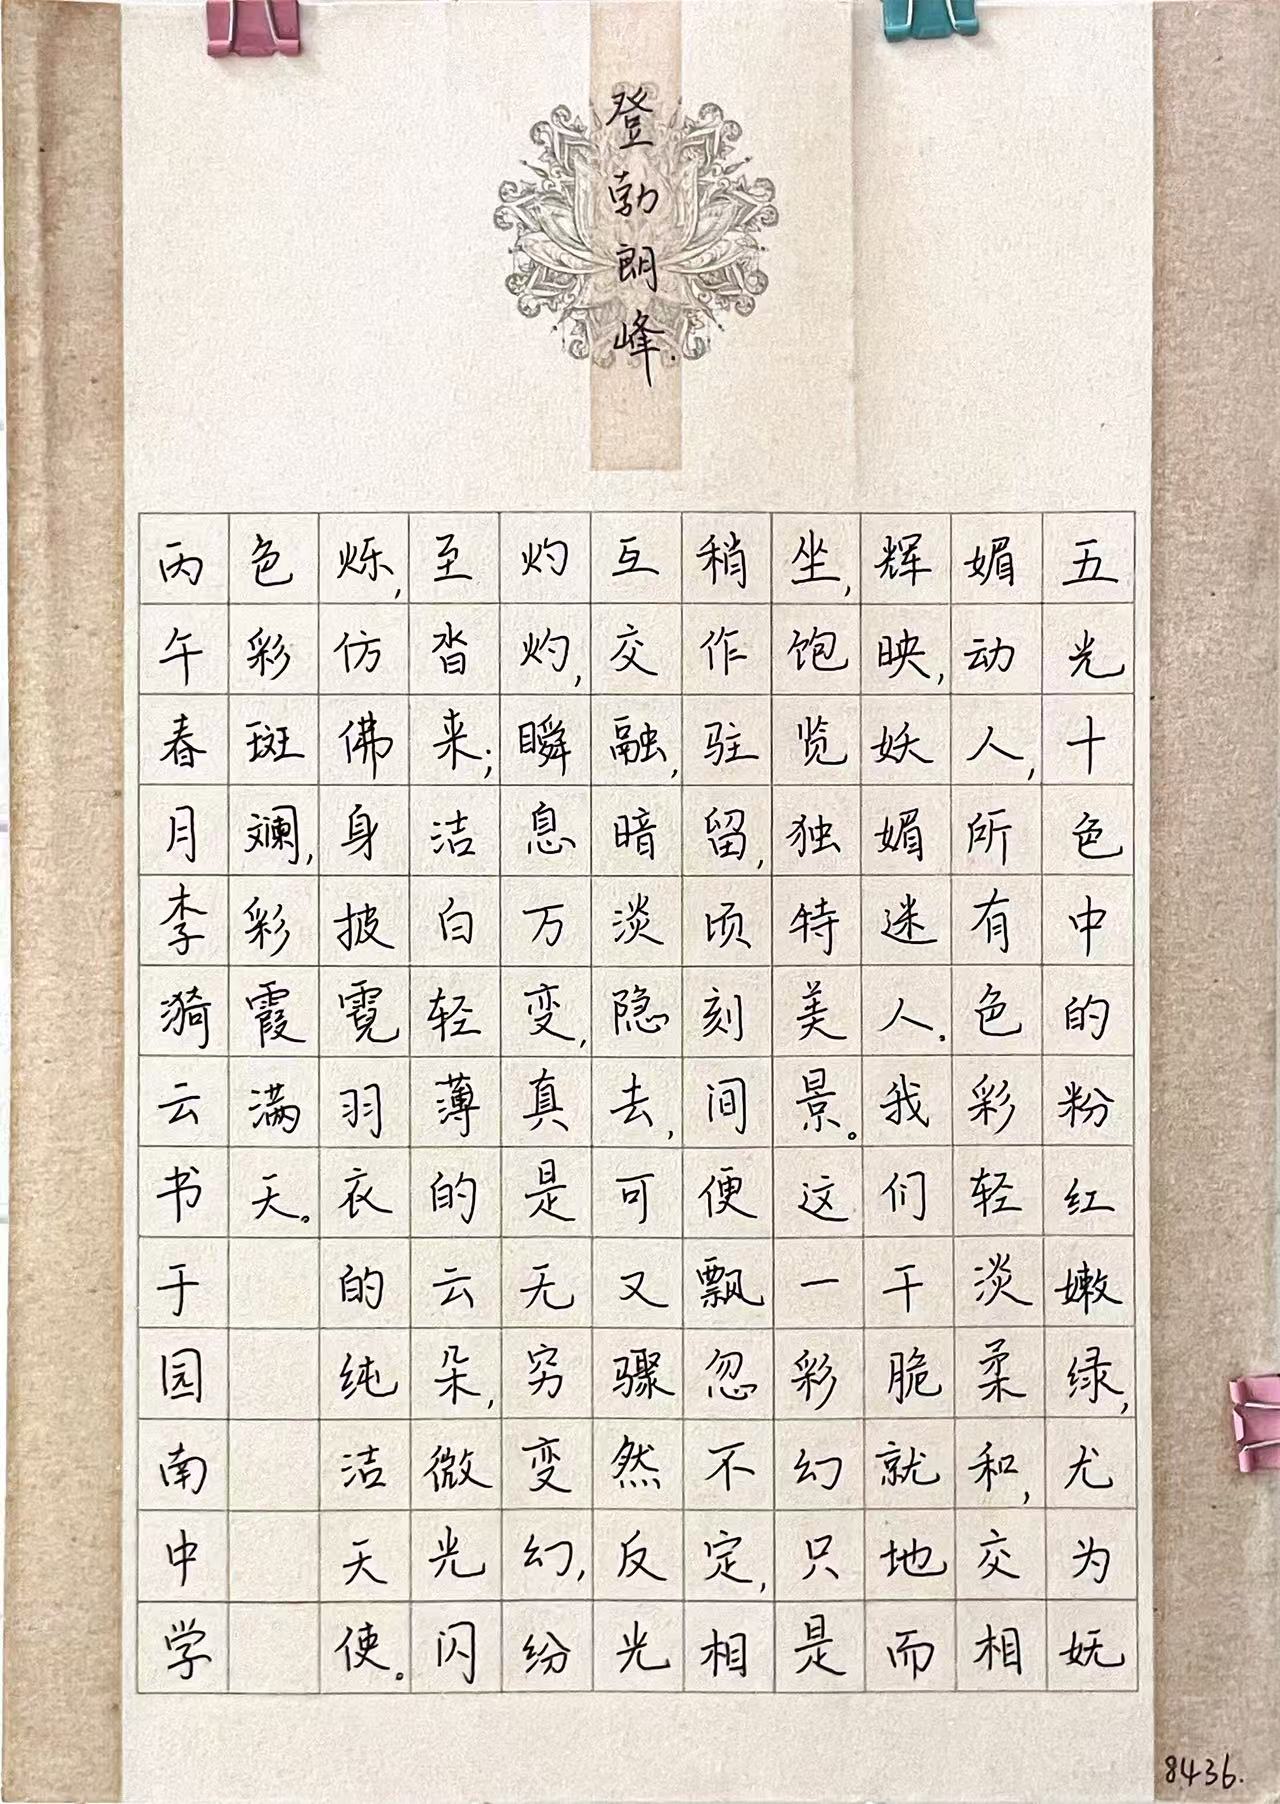 登勃朗峰.
五光十色中的粉红嫩绿,尤为妩
媚动人,所有色彩轻淡柔和,交相
辉映,妖媚迷人。我们干脆就地而
坐,饱览独特美景。这一彩幻只是
稍作驻留,顷刻间便飘忽不定,相
互交融,暗淡隐去,可又骤然反光
灼灼,瞬息万变,真是无穷变幻,纷
至沓来;洁白轻薄的云朵,微光闪
烁,仿佛身披霓羽衣的纯洁天使。
色彩斑斓,彩霞满天。
丙午春月李漪云书于园南中学
8436.